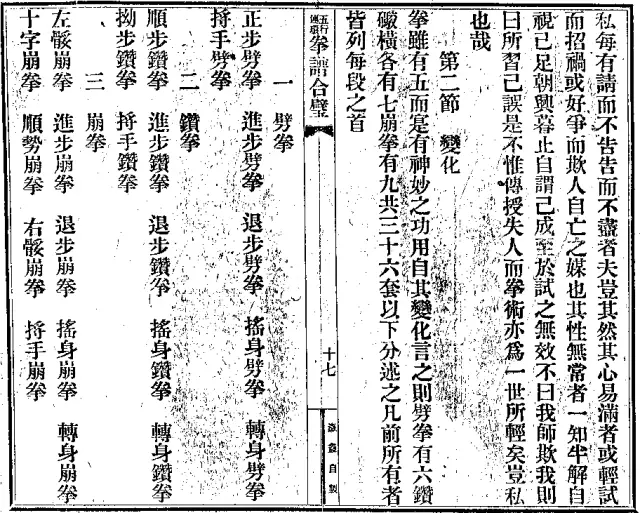 私每有請而不告告而不盡者夫豈其然其心易滿者或輕試
而招禍或好爭而欺人自亡之媒也其性無常者一知半解自
視已足朝興暮止自謂已成至於試之無效不曰我師欺我則
曰所習已誤是不惟傳授失人而拳術亦爲一世所輕矣豈私
也哉
第二節 變化
拳雖有五而寔有神妙之功用自其變化言之則劈拳有六鑽
礮橫各有七崩拳有九共三十六套以下分述之凡前所有者
皆列每段之首
五行連環拳譜合璧
十七
一 劈拳
正步劈拳 進步劈拳 退步劈拳 搖身劈拳 轉身劈拳
捋手劈拳
二 鑽拳
順步鑽拳 進步鑽拳 退步鑽拳 搖身鑽拳 轉身鑽拳
拗步鑽拳 捋手鑽拳
三 崩拳
左骽崩拳 進步崩拳 退步崩拳 搖身崩拳 轉身崩拳
十字崩拳 順勢崩拳 右骽崩拳 捋手崩拳